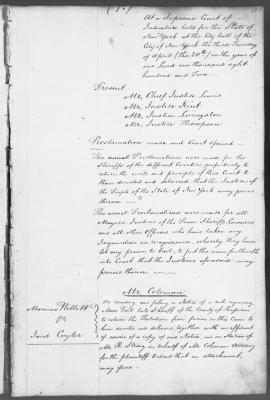 At a Supreme Court of
Judicature held for the State of
New York at the City hall of the
City of New York the third Tuesday
of April (the 20th) in the year of
our Lord one thousand eight
hundred and Two.
Present
Mr. Chief Justice Lewis
Mr. Justice Kent
Mr. Justice Livingston
Mr. Justice Thompson
Proclamation made and Court opened
The usual Proclamations were made for the
Sheriffs of the different Counties respectively to
return the writs and precepts of this Court to
them directed and delivered that the Justices of
the People of the State of New York may proceed
thereon
The usual Proclamations were made for all
Mayors Justices of the Peace Sheriffs Coroners
and all other Officers who have taken any
Inquisition or recognizance, whereby they have
let any person to bail, to put the same forthwith
into Court that the Justices aforesaid may
proceed thereon
Mr. Coleman
Marinus Willett
vs
Jacob Cuyler
On reading and filing a Notice of a rule requiring
late Sheriff of the County of
to return the facias in this Cause to
him directed and delivered, together with an affidavit
of service of a copy of said Notice, and on Motion of
Mr. Coleman Attorney
for the plaintiff Ordered that an attachment
may issue